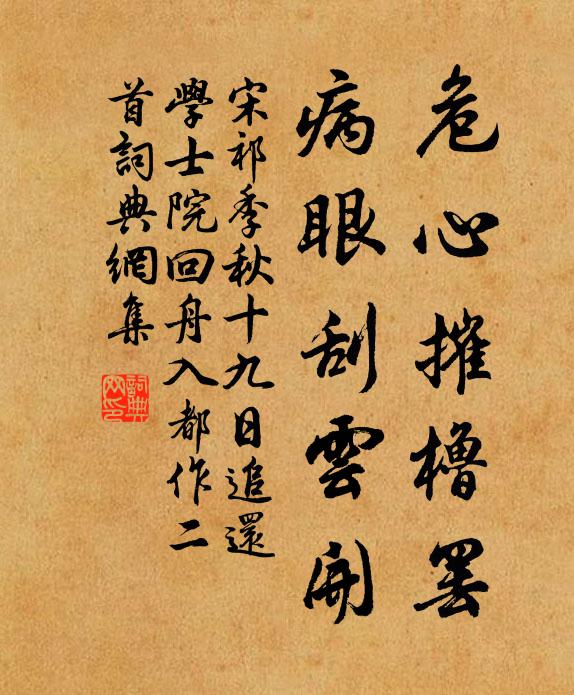 危心摧櫓罷
病眼刮雲開
宋祁季秋十九日追還
學士院回舟入都作二
首詞典網集
詞典
网印